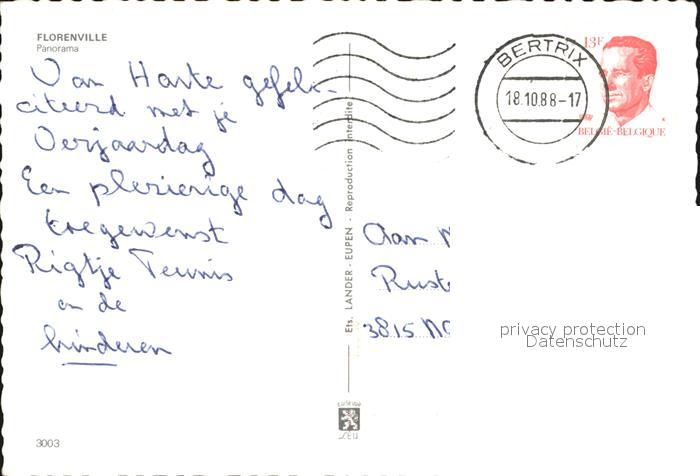 FLORENVILLE
Panorama
Van Harte gefeli-
citeerd met je
Verjaardag
Een plezierige dag
toegewenst
Rigtje Teunis
en de
kinderen
3003
Ets. LANDER - EUPEN - Reproduction interdite
BERTRIX
18.10.88-17
13F
BELGIË-BELGIQUE
Aan
Rust
3815 NC
privacy protection
Datenschutz